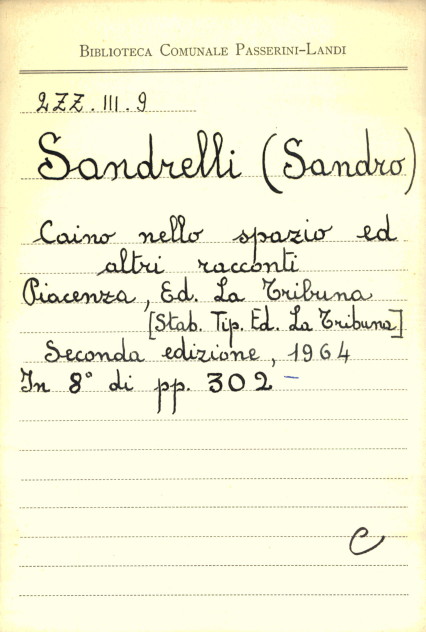 BIBLIOTECA COMUNALE PASSERINI-LANDI
2ZZ.III.9
Sandrelli (Sandro)
Caino nello spazio ed
altri racconti
Piacenza, Ed. La Tribuna
[Stab. Tip. Ed. La Tribuna]
Seconda edizione, 1964
In 8° di pp. 302 -
C